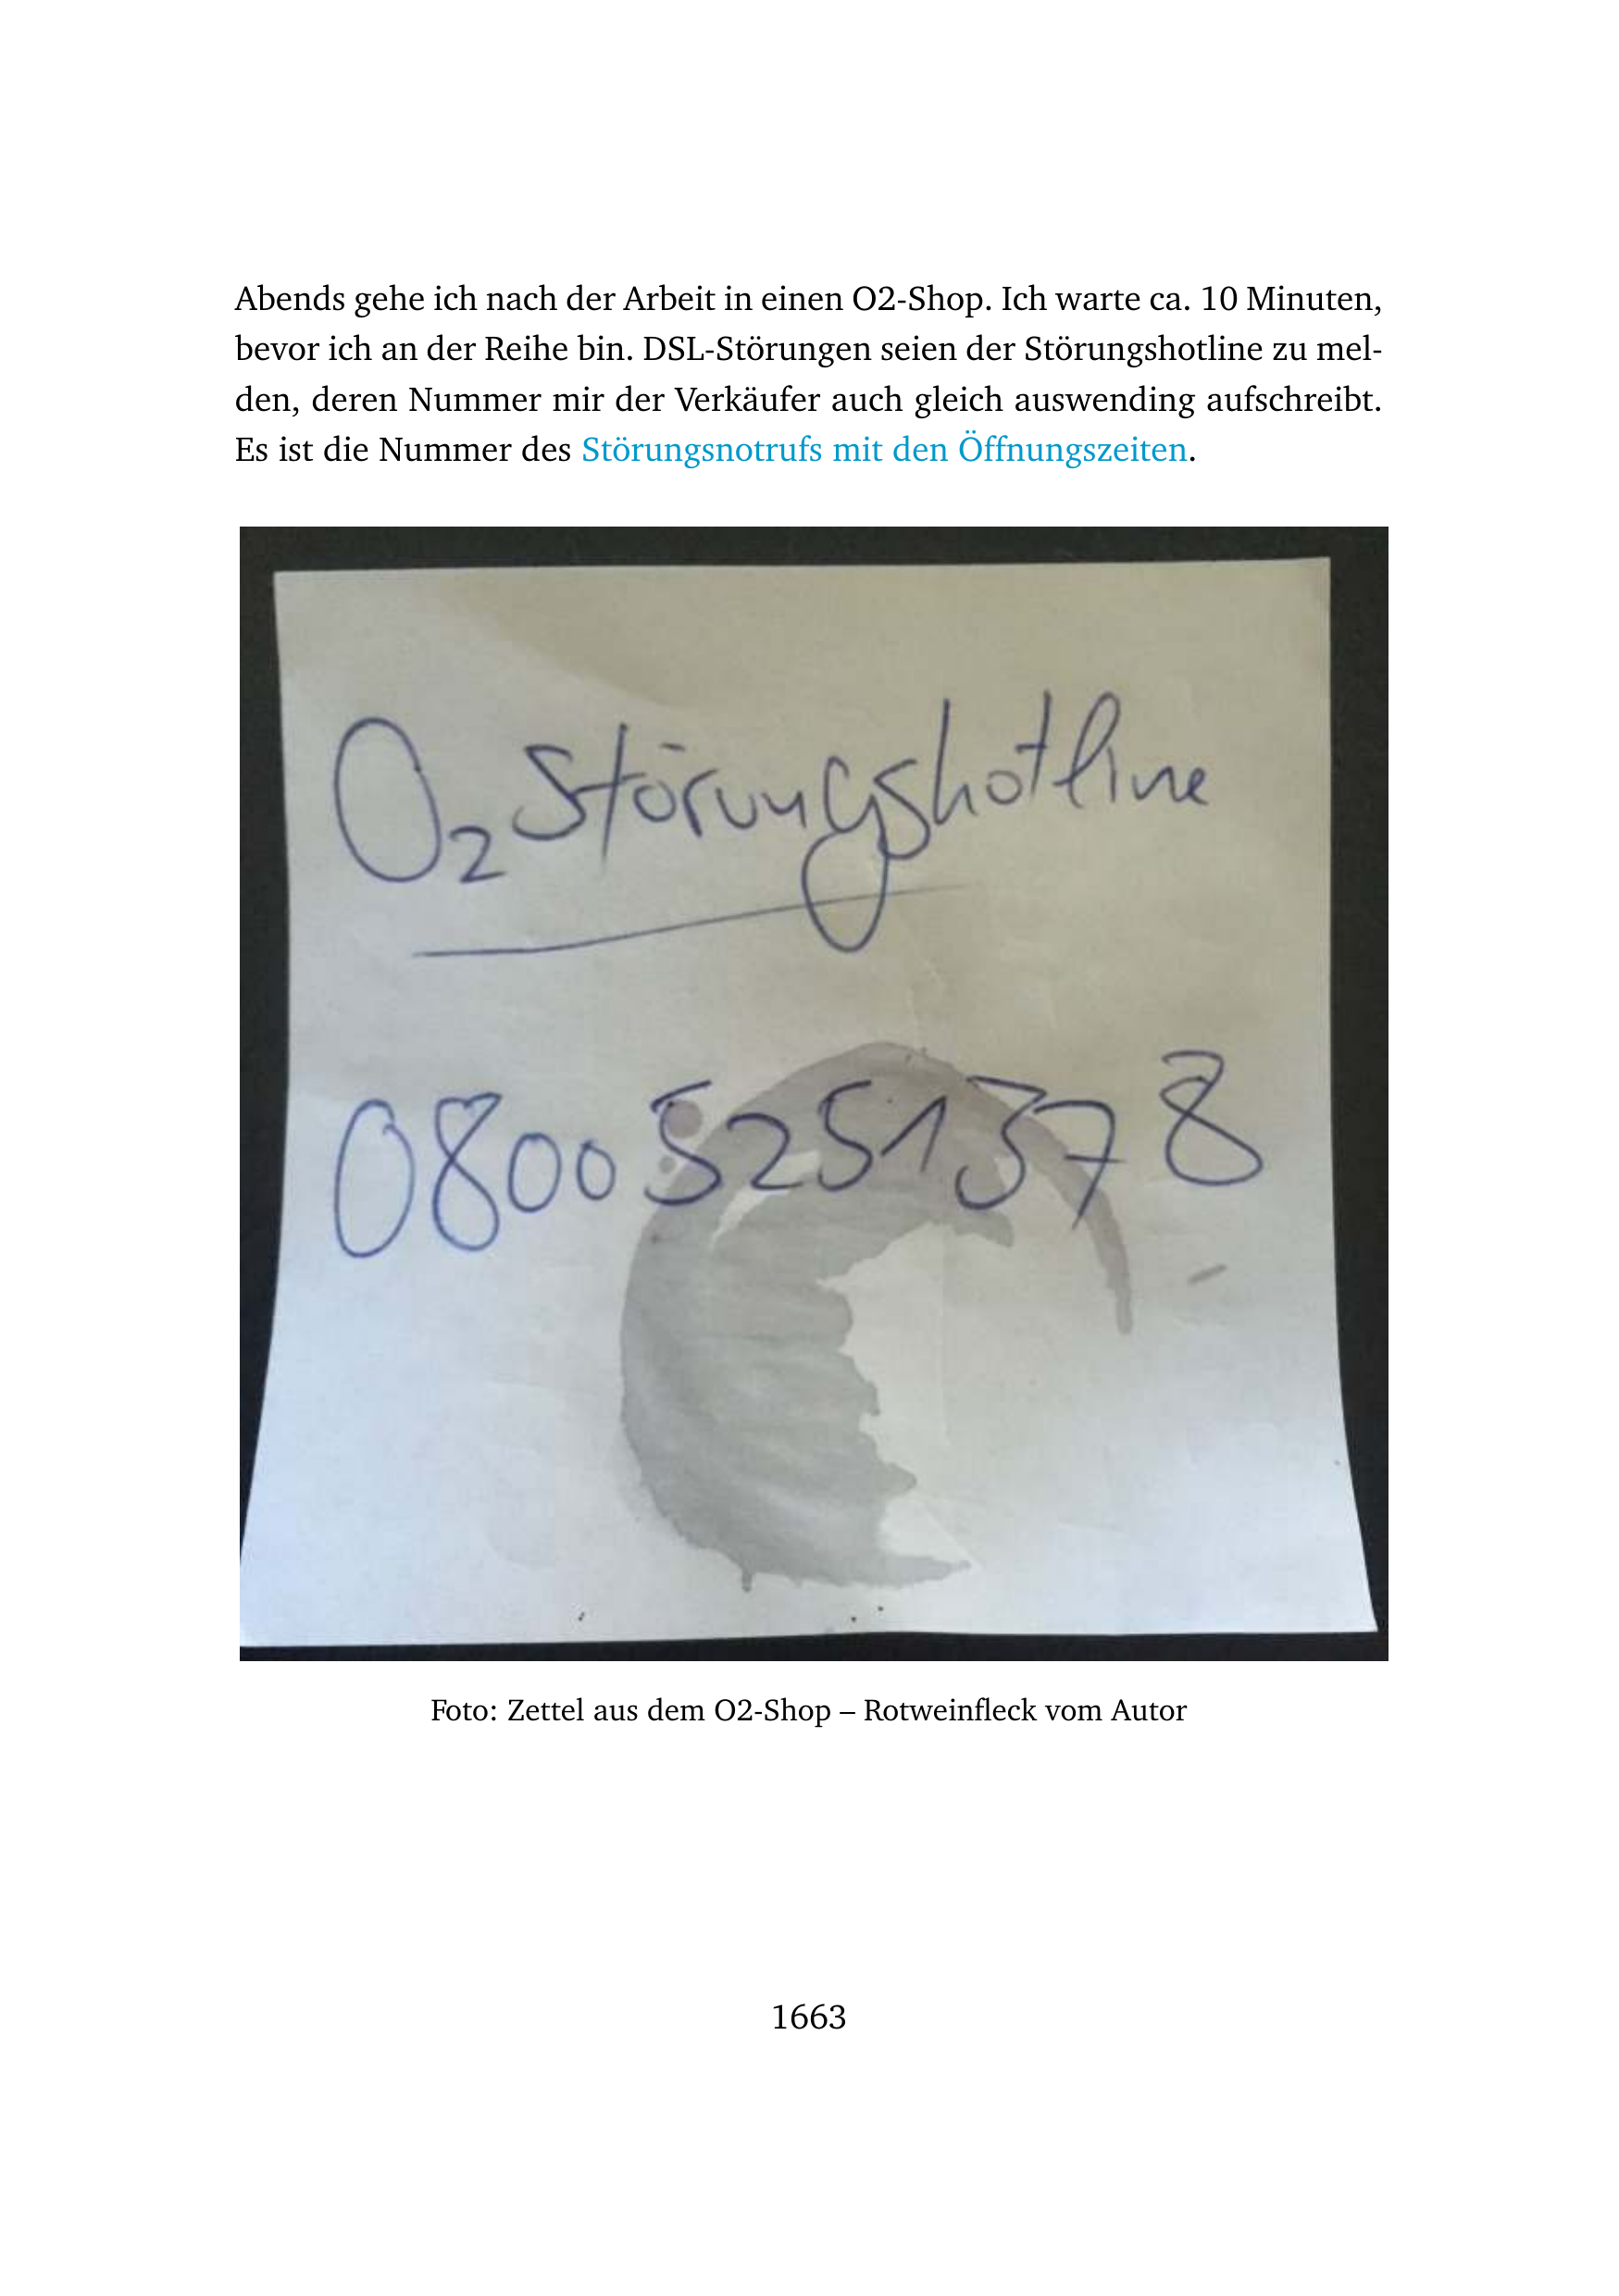 Abends gehe ich nach der Arbeit in einen O2-Shop. Ich warte ca. 10 Minuten,
bevor ich an der Reihe bin. DSL-Störungen seien der Störungshotline zu mel-
den, deren Nummer mir der Verkäufer auch gleich auswending aufschreibt.
Es ist die Nummer des Störungsnotrufs mit den Öffnungszeiten.
O2 Störungshotline
0800 5251378
Foto: Zettel aus dem O2-Shop – Rotweinfleck vom Autor
1663